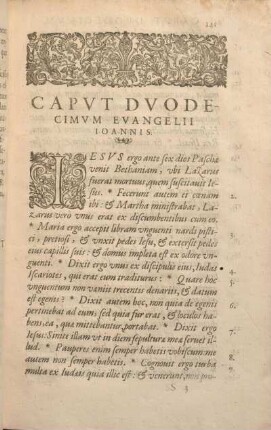 CAPVT DVODE-
CIMVM EVANGELII
IOANNIS.
IESVS ergo ante sex dies Paschæ
venit Bethaniam, vbi Lazarus
fuerat mortuus, quem suscitauit Ie-
sus. * Fecerunt autem ei cœnam
ibi: & Martha ministrabat, La-
zarus vero vnus erat ex discumbentibus cum eo.
* Maria ergo accepit libram vnguenti nardi pisti-
ci, pretiosi, & vnxit pedes Iesu, & extersit pedes
eius capillis suis: & domus impleta est ex odore vn-
guenti. * Dixit ergo vnus ex discipulis eius, Iudas
Iscariotes, qui erat eum traditurus: * Quare hoc
vnguentum non vænijt trecentis denarijs, & datum
est egenis? * Dixit autem hoc, non quia de egenis
pertinebat ad eum, sed quia fur erat, & loculos ha-
bens, ea, quæ mittebantur, portabat. * Dixit ergo
Iesus: Sinite illam vt in diem sepulturæ meæ seruet il-
lud. * Pauperes enim semper habetis vobiscum: me
autem non semper habetis. * Cognouit ergo turba
multa ex Iudæis quia illic est: & venerunt, non
S 3